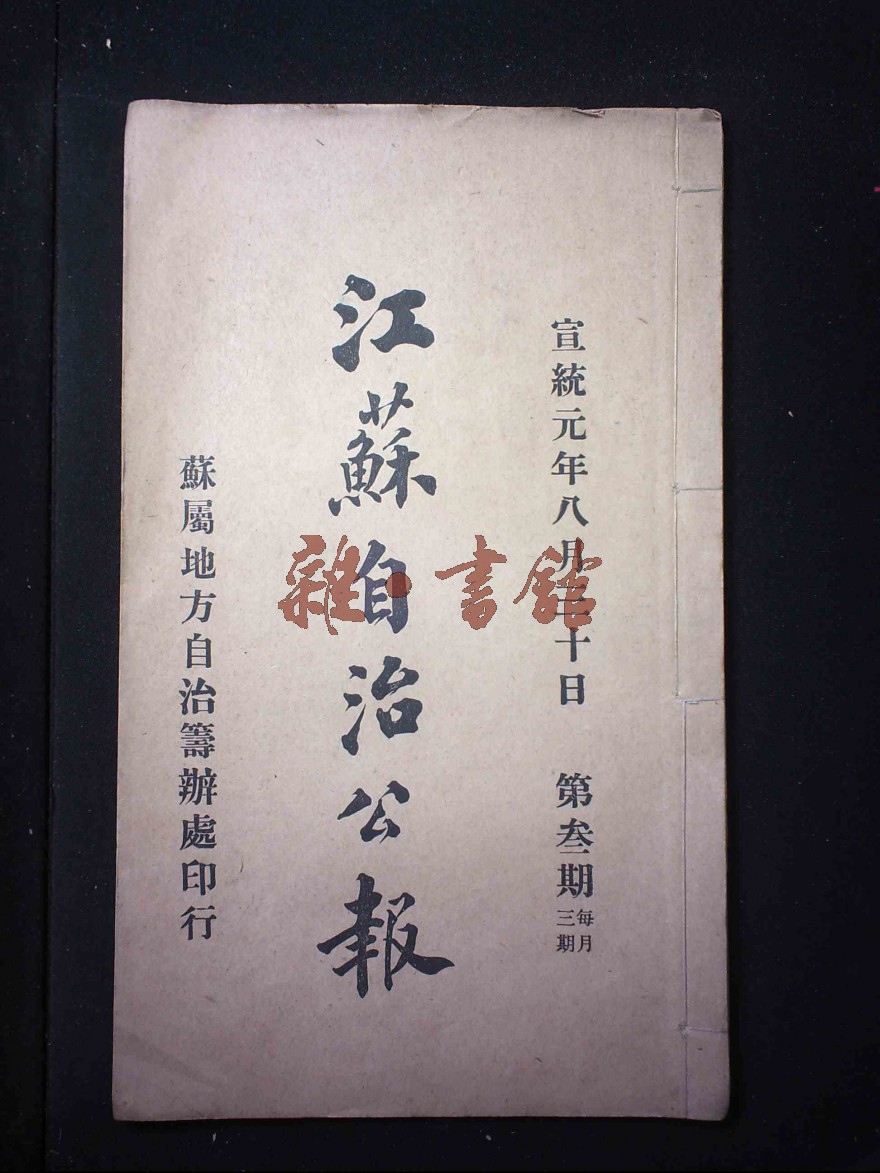 宣統元年八月三十日 第叁期 每月三期
江蘇自治公報
蘇屬地方自治籌辦處印行
雜·書館